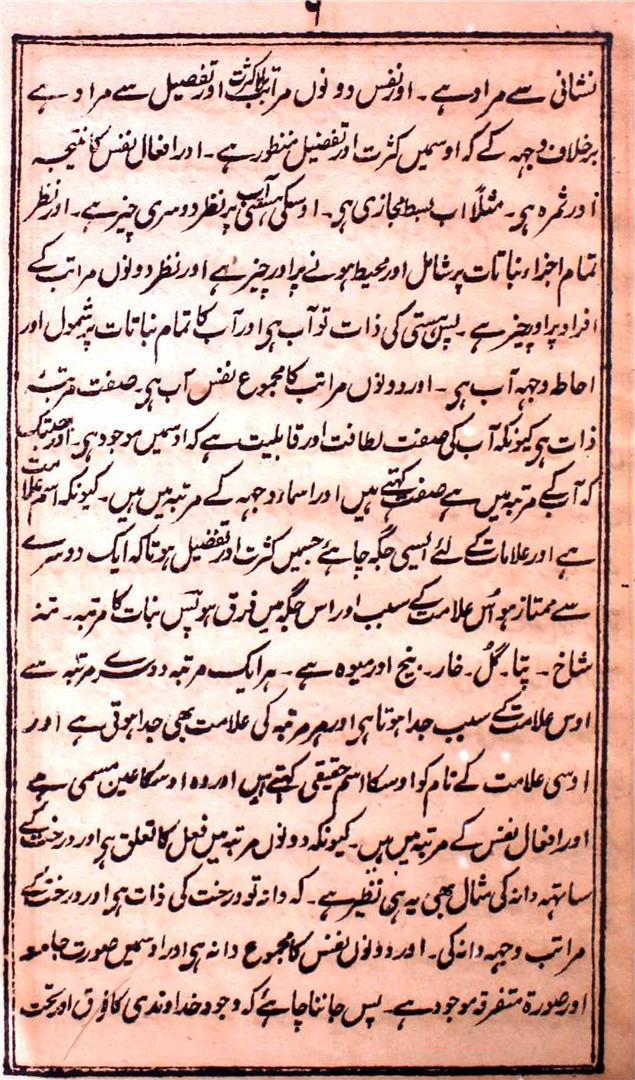 ۶
نشانی سے مراد ہے۔ اور نفس دونوں مراتب بلا کثرت اور تفصیل سے مراد ہے
برخلاف وجہہ کے کہ اوسمیں کثرت اور تفصیل منظور ہے۔ اور افعال نفس کا نتیجہ
اور ثمرہ ہی۔ مثلًا اب بسط مجازی ہی۔ اوسکی ہستی آب پر نظر دوسری چیز ہے۔ اور نظر
تمام اجزاء نباتات پر شامل اور محیط ہونے پر اور چیز ہے اور نظر دونوں مراتب کے
افراد پر اور چیز ہے۔ پس ہستی کی ذات تو آب ہی اور آب کا تمام نباتات پر شمول اور
احاطہ وجہہ آب ہی۔ اور دونوں مراتب کا مجموع نفس آب ہی۔ صفت مرتبہٴ
ذات ہی کیونکہ آب کی صفت لطافت اور قابلیت ہے کہ اوسمیں موجود ہی۔ اور جب تک
کہ آب کے مرتبہ میں ہے صفت کہتے ہیں اور اسماء وجہہ کے مرتبہ میں ہیں۔ کیونکہ اسم علامت
ہے اور علامات کے لئے ایسی جگہ چاہئے جسمیں کثرت اور تفصیل ہو تاکہ ایک دوسرے
سے ممتاز ہو اُس علامت کے سبب اور اس جگہ میں فرق ہو پس نبات کا مرتبہ۔ تنہ
شاخ۔ پتا۔ گُل۔ خار۔ بیخ اور میوہ ہے۔ ہر ایک مرتبہ دوسرے مرتبہ سے
اوس علامت کے سبب جدا ہوتا ہی اور ہر مرتبہ کی علامت بھی جدا ہوتی ہے اور
اوسی علامت کے نام کو اوسکا اسم حقیقی کہتے ہیں اور وہ اوسکا عین مسمی ہے
اور افعال نفس کے مرتبہ میں ہیں۔ کیونکہ دونوں مرتبہ میں فعل کا تعلق ہی اور درخت کے
ساتہہ دانہ کی مثال بھی یہ ہی نظیر ہے۔ کہ دانہ تو درخت کی ذات ہی اور درخت کے
مراتب وجہہ دانہ کی۔ اور دونوں نفس کا مجموع دانہ ہی اور اوسمیں صورت جامعہ
اور صورۃ متفرقہ موجود ہے۔ پس جاننا چاہئے کہ وجود خداوندی کا فوق اور تحت